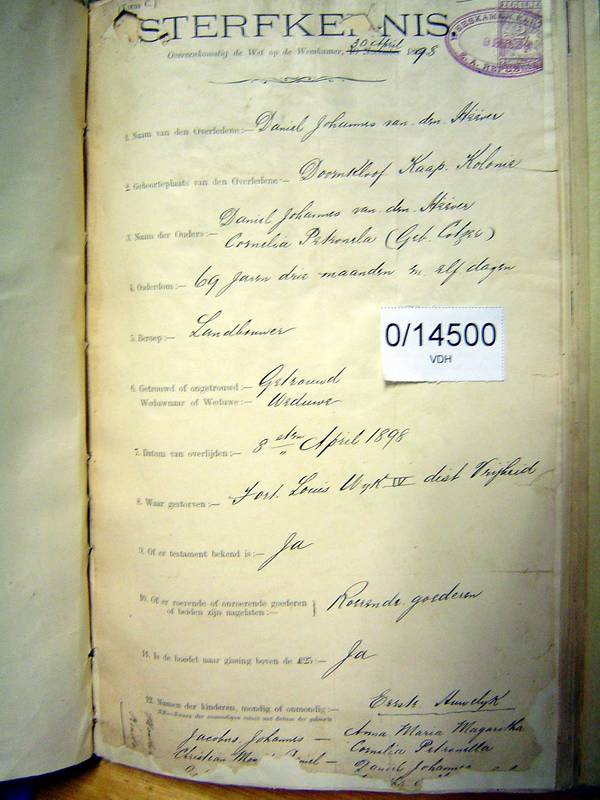 STERFKENNIS.
Overeenkomstig de Wet op de Weeskamer, 30 April 1898
1. Naam van den Overledene:— Daniel Johannes van den Heever
2. Geboorteplaats van den Overledene:— Doornkloof Kaap Kolonie
3. Naam der Ouders:— Daniel Johannes van den Heever
Cornelia Petronela (Geb. Cotzer)
4. Ouderdom:— 69 Jaren drie maanden en elf dagen
5. Beroep:— Landbouwer
0/14500
VDH
6. Getrouwd of ongetrouwd:— Getrouwd
Weduwnaar of Weduwe:— Weduwe
7. Datum van overlijden:— 8 sten April 1898
8. Waar gestorven:— Fort. Louis Wyk IV dist Vrijheid
9. Of er testament bekend is:— Ja
10. Of er roerende of onroerende goederen
of beiden zijn nagelaten:— } Roerende goederen
11. Is de boedel naar gissing boven de £25:— Ja
12. Namen der kinderen, mondig of onmondig:— Eerste Huwelijk
Jacobus Johannes — Anna Maria Magaretha
Christian — Cornelia Petronella
Daniel Johannes